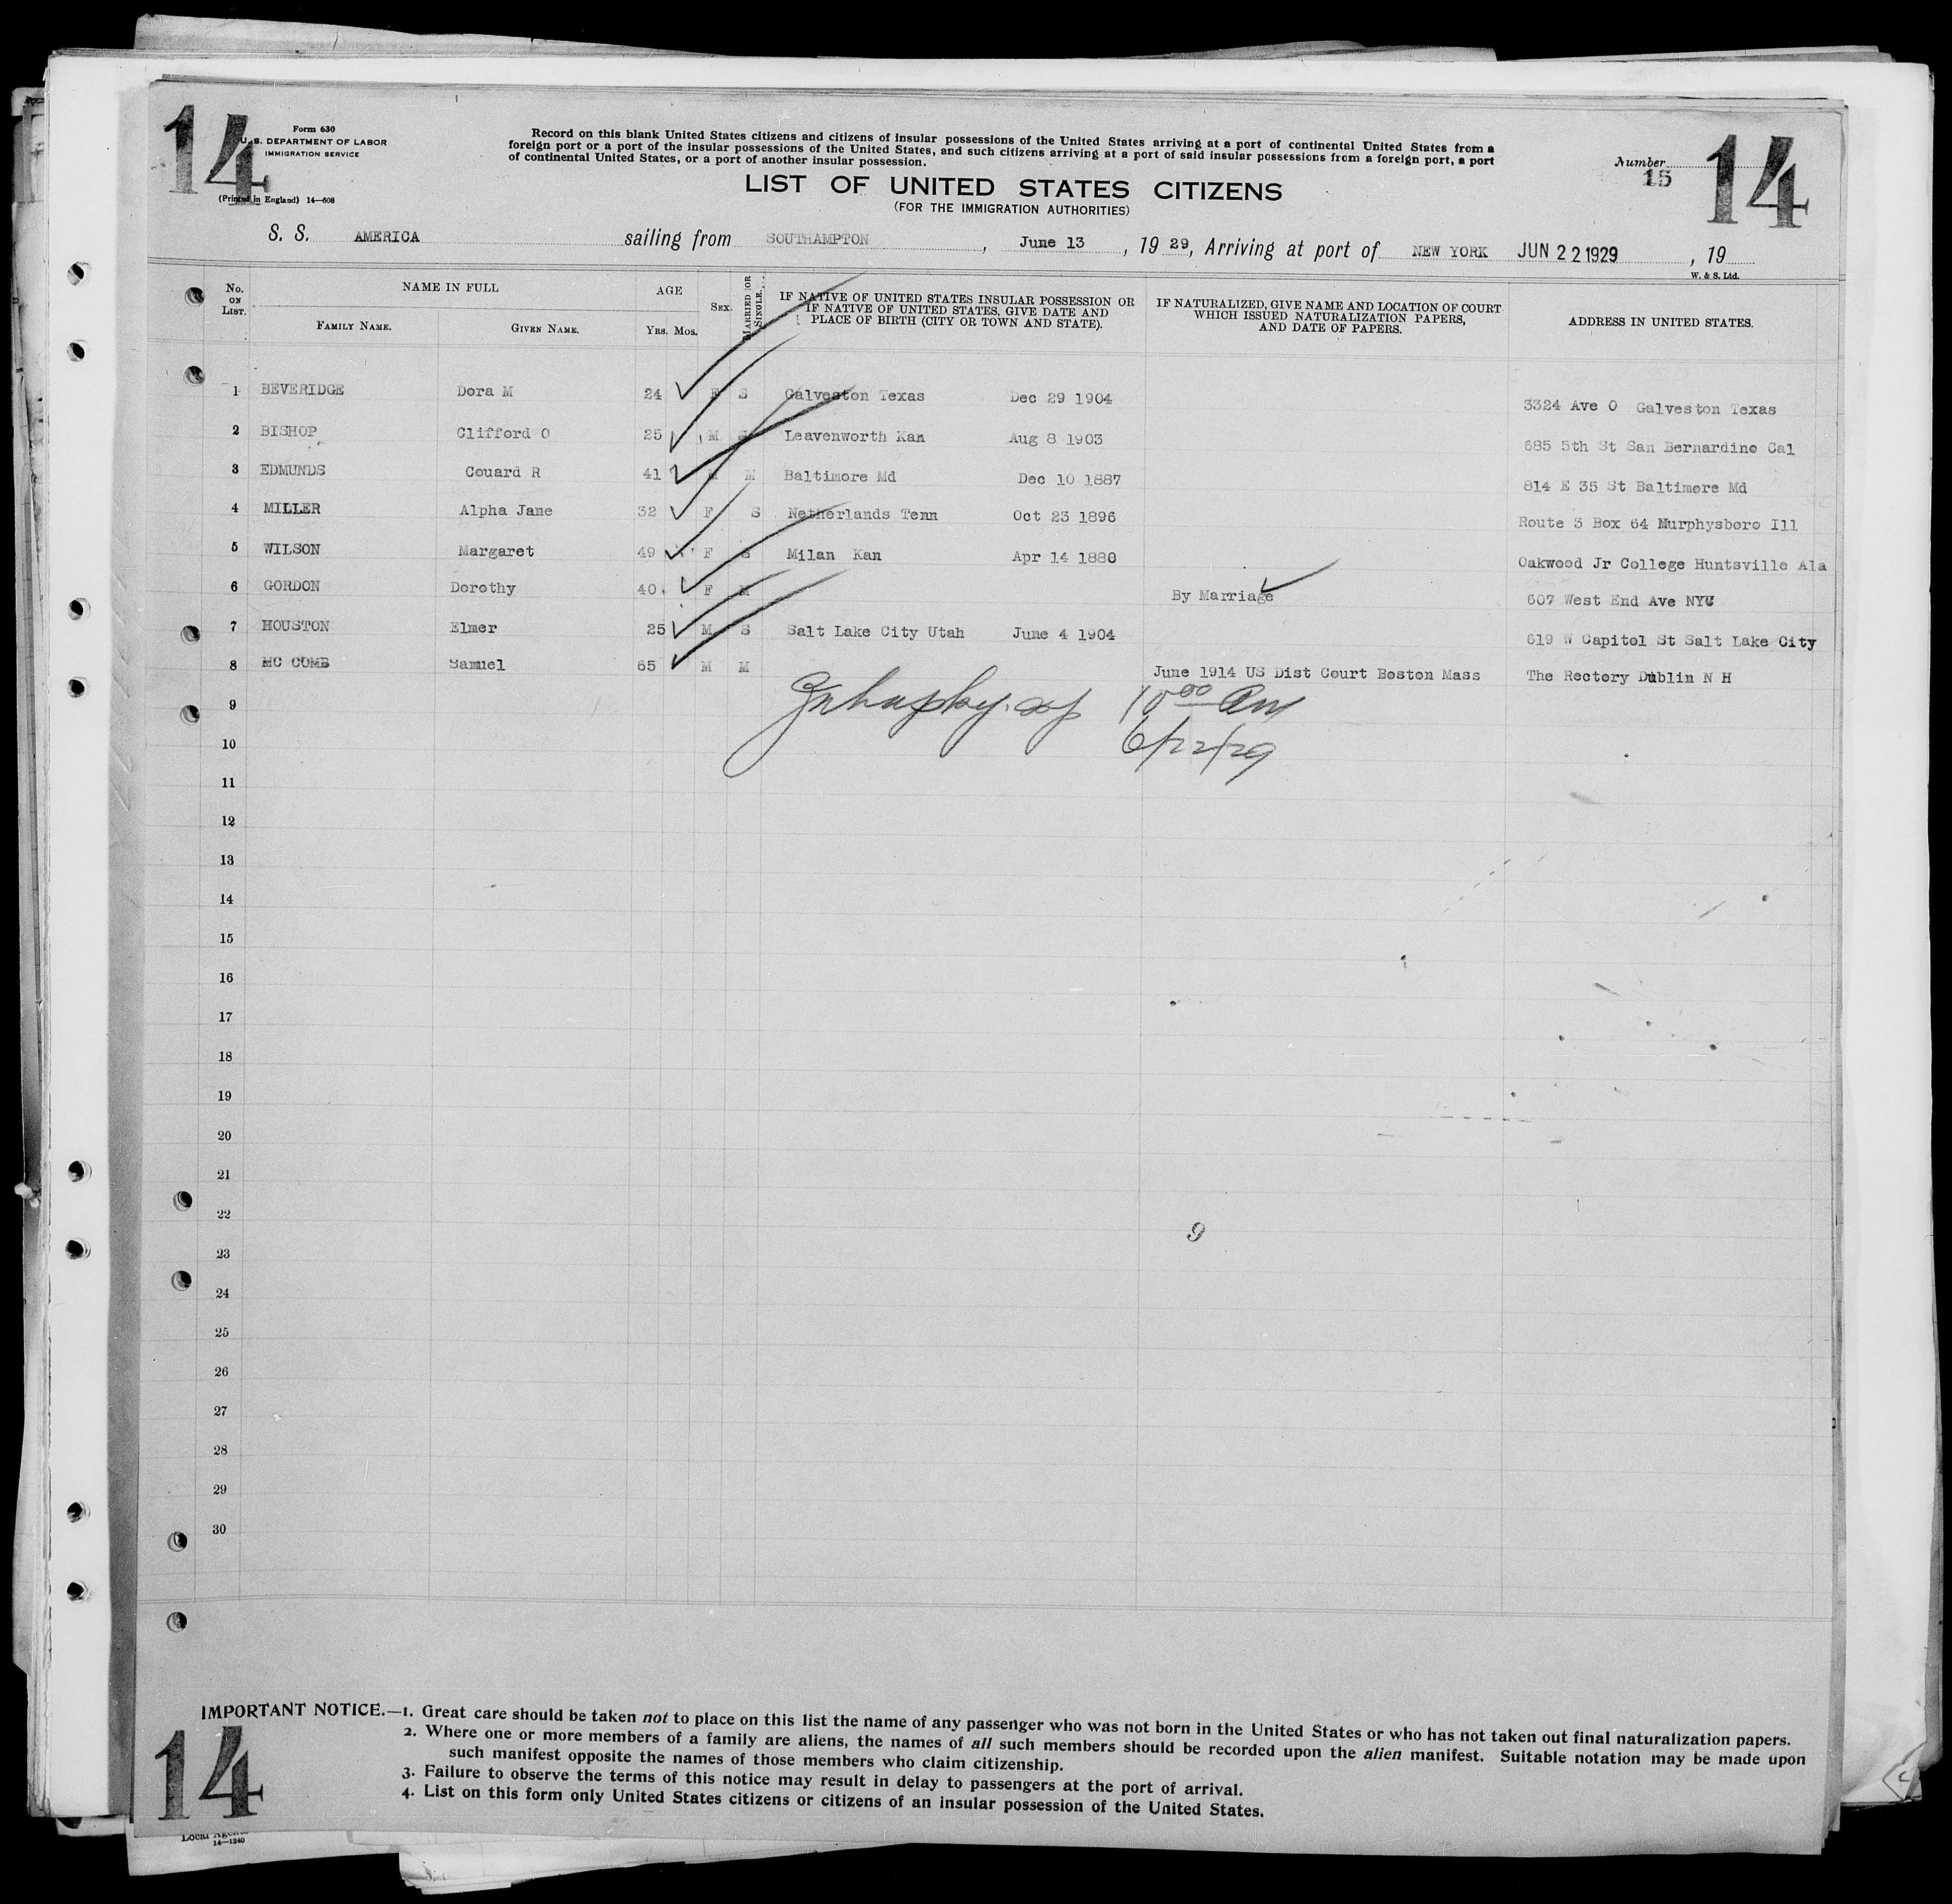 14
Form 630
U. S. DEPARTMENT OF LABOR
IMMIGRATION SERVICE
(Printed in England) 14—608
Record on this blank United States citizens and citizens of insular possessions of the United States arriving at a port of continental United States from a
foreign port or a port of the insular possessions of the United States, and such citizens arriving at a port of said insular possessions from a foreign port, a port
of continental United States, or a port of another insular possession.
Number
15
14
LIST OF UNITED STATES CITIZENS
(FOR THE IMMIGRATION AUTHORITIES)
S. S. AMERICA sailing from SOUTHAMPTON, June 13, 19 29, Arriving at port of NEW YORK JUN 22 1929, 19
W. & S. Ltd.
No. ON LIST. NAME IN FULL FAMILY NAME. GIVEN NAME. AGE YRS. MOS. SEX. MARRIED OR SINGLE. IF NATIVE OF UNITED STATES INSULAR POSSESSION OR IF NATIVE OF UNITED STATES, GIVE DATE AND PLACE OF BIRTH (CITY OR TOWN AND STATE). IF NATURALIZED, GIVE NAME AND LOCATION OF COURT WHICH ISSUED NATURALIZATION PAPERS, AND DATE OF PAPERS. ADDRESS IN UNITED STATES.
1 BEVERIDGE Dora M 24 F S Galveston Texas Dec 29 1904 3324 Ave O Galveston Texas
2 BISHOP Clifford O 25 M S Leavenworth Kan Aug 8 1903 685 5th St San Bernardino Cal
3 EDMUNDS Couard R 41 M M Baltimore Md Dec 10 1887 814 E 35 St Baltimore Md
4 MILLER Alpha Jane 32 F S Netherlands Tenn Oct 23 1896 Route 3 Box 64 Murphysboro Ill
5 WILSON Margaret 49 F S Milan Kan Apr 14 1880 Oakwood Jr College Huntsville Ala
6 GORDON Dorothy 40 F M By Marriage 607 West End Ave NYC
7 HOUSTON Elmer 25 M S Salt Lake City Utah June 4 1904 619 W Capitol St Salt Lake City
8 MC COMB Samuel 65 M M June 1914 US Dist Court Boston Mass The Rectory Dublin N H
9 10 00 Am
10 6/22/29
11
12
13
14
15
16
17
18
19
20
21
22
9
23
24
25
26
27
28
29
30
IMPORTANT NOTICE.—1. Great care should be taken not to place on this list the name of any passenger who was not born in the United States or who has not taken out final naturalization papers.
2. Where one or more members of a family are aliens, the names of all such members should be recorded upon the alien manifest. Suitable notation may be made upon
such manifest opposite the names of those members who claim citizenship.
3. Failure to observe the terms of this notice may result in delay to passengers at the port of arrival.
4. List on this form only United States citizens or citizens of an insular possession of the United States.
14
Local
14—1240